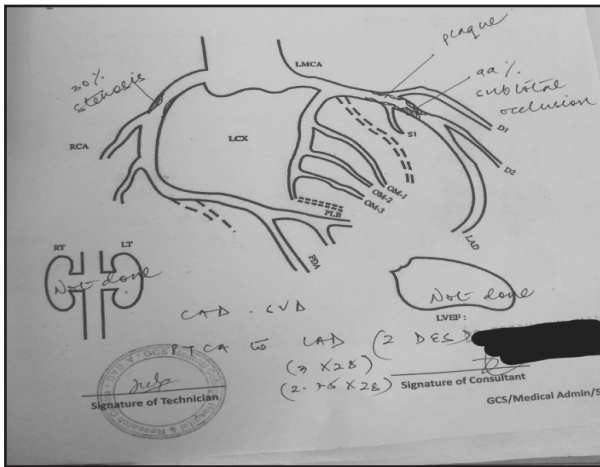 30%
stenosis
LMCA
plaque
99%
subtotal
occlusion
RCA
LCX
S1
D1
D2
OM-1
OM-2
OM-3
PLB
PDA
LAD
RT
LT
Not done
Not done
LVEF :
CAD - SVD
PTCA to LAD (2 DES)
(3 X 28)
(2.75 X 28)
Signature of Technician
Signature of Consultant
GCS/Medical Admin/5